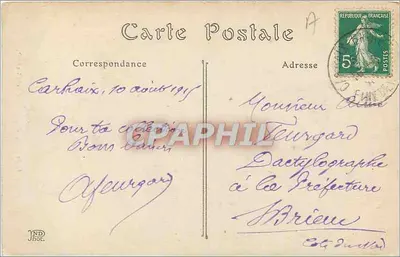 Carte Postale
A
Correspondance
Adresse
REPUBLIQUE FRANÇAISE
5c
POSTES
Carhaix, 10 août 1915
Pour ta
Bons
Monsieur
Feurgard
Dactylographe
à la Préfecture
St Brieuc
Côtes du Nord
Feurgard
DELCAMPHIL
ND
Phot.